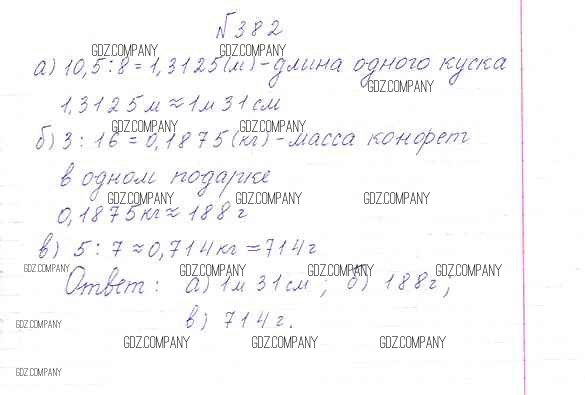 № 382
GDZ.COMPANY GDZ.COMPANY
а) 10,5 : 8 = 1,3125 (м) - длина одного куска
GDZ.COMPANY
1,3125 м ≈ 1 м 31 см
GDZ.COMPANY GDZ.COMPANY
б) 3 : 16 = 0,1875 (кг) - масса конфет
в одном подарке
GDZ.COMPANY GDZ.COMPANY GDZ.COMPANY
0,1875 кг ≈ 188 г
в) 5 : 7 ≈ 0,714 кг = 714 г
GDZ.COMPANY GDZ.COMPANY GDZ.COMPANY GDZ.COMPANY
Ответ: а) 1 м 31 см; б) 188 г,
в) 714 г.
GDZ.COMPANY
GDZ.COMPANY GDZ.COMPANY GDZ.COMPANY
GDZ.COMPANY